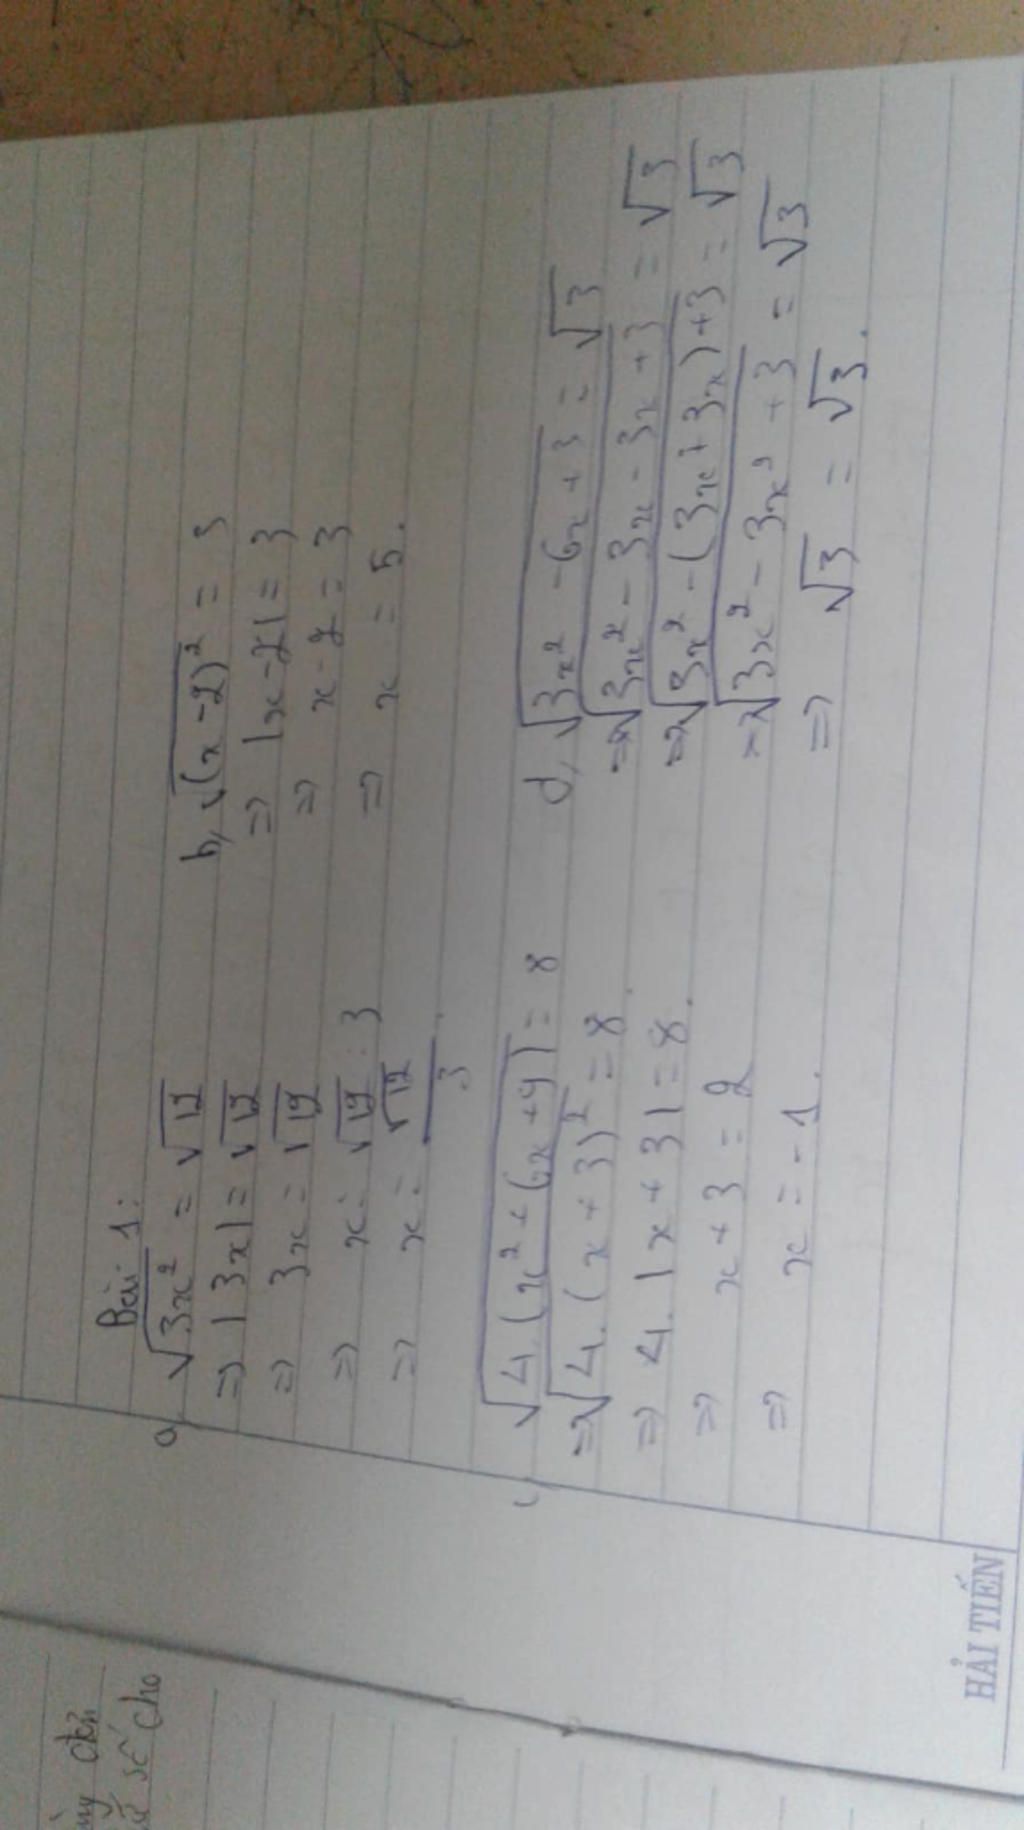 Bài 1:
a, √3x² = √12
=> |3x| = √12
=> 3x = √12
=> x = √12 : 3
=> x = √12/3
b, √(x-2)² = 3
=> |x-2| = 3
=> x-2 = 3
=> x = 5.
c, √4.(x²+6x+9) = 8
=> √4.(x+3)² = 8
=> 4.|x+3| = 8
=> x+3 = 2
=> x = -1.
d, √3x²-6x+3 = √3
=> √3x²-3x-3x+3 = √3
=> √3x²-(3x+3x)+3 = √3
=> √3x²-3x²+3 = √3
=> √3 = √3.
HẢI TIẾN
số cho